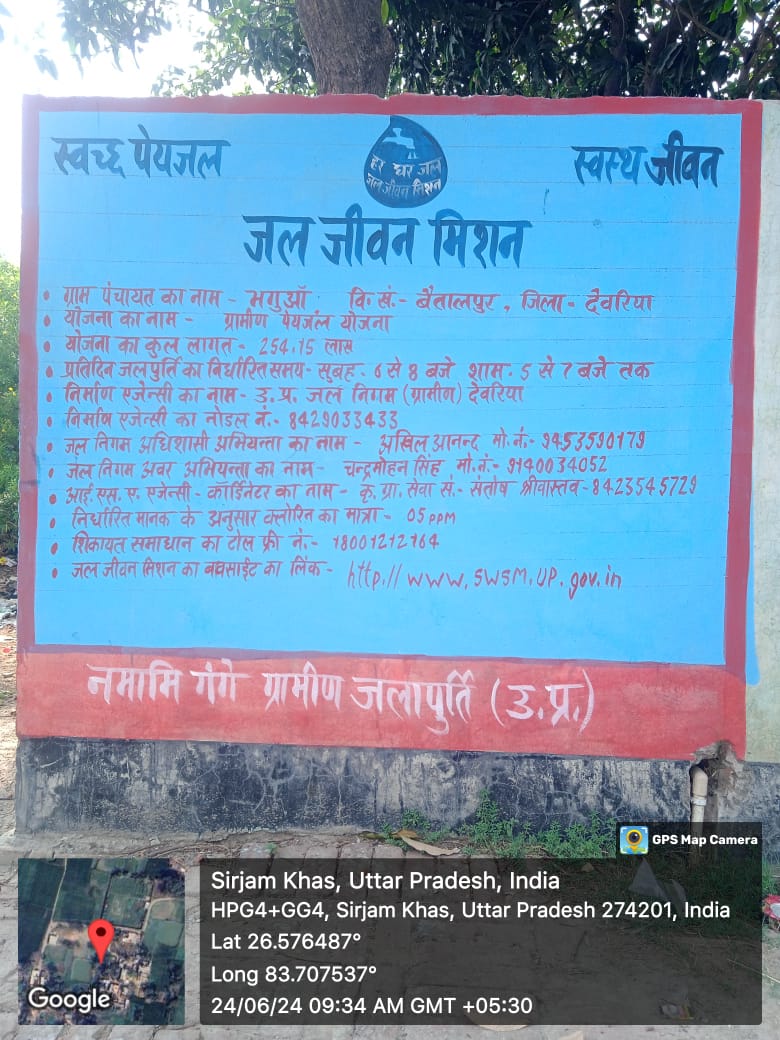 स्वच्छ पेयजल
हर घर जल
जल जीवन मिशन
स्वस्थ जीवन
जल जीवन मिशन
• ग्राम पंचायत का नाम - भगुऑ वि.खं.- बैतालपुर, जिला - देवरिया
• योजना का नाम - ग्रामीण पेयजल योजना
• योजना का कुल लागत - 254.15 लाख
• प्रतिदिन जलपुर्ति का निर्धारित समय - सुबह - 6 से 8 बजे शाम - 5 से 7 बजे तक
• निर्माण एजेन्सी का नाम - उ.प्र. जल निगम (ग्रामीण) देवरिया
• निर्माण एजेन्सी का नोडल नं.- 8429033433
• जल निगम अधिशासी अभियन्ता का नाम - अखिल आनन्द मो.नं.- 9453590179
• जल निगम अवर अभियन्ता का नाम - चन्द्रमोहन सिंह मो.नं.- 9140034052
• आई.एस.ए. एजेन्सी - कॉर्डिनेटर का नाम - कृ.ग्रा. सेवा सं.- संतोष श्रीवास्तव - 8423545729
• निर्धारित मानक के अनुसार क्लोरिन का मात्रा - 05 ppm
• शिकायत समाधान का टोल फ्री नं.- 18001212164
• जल जीवन मिशन का वेबसाईट का लिंक - http://www.swsm.up.gov.in
नमामि गंगे ग्रामीण जलापुर्ति (उ.प्र.)
GPS Map Camera
Sirjam Khas, Uttar Pradesh, India
HPG4+GG4, Sirjam Khas, Uttar Pradesh 274201, India
Lat 26.576487°
Long 83.707537°
24/06/24 09:34 AM GMT +05:30
Google